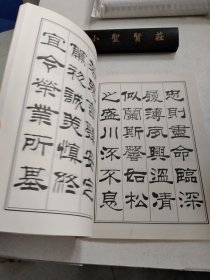 小聖賢莊
忠則盡命臨深
履薄夙興溫清
似蘭斯馨如松
之盛川流不息
思言辭安定
篤初誠美慎終
宜令榮業所基